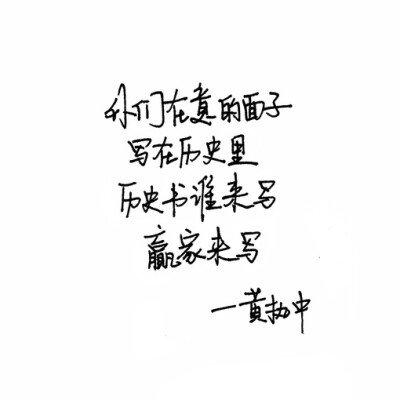 你们在意的面子
写在历史里
历史书谁来写
赢家来写
一黄执中